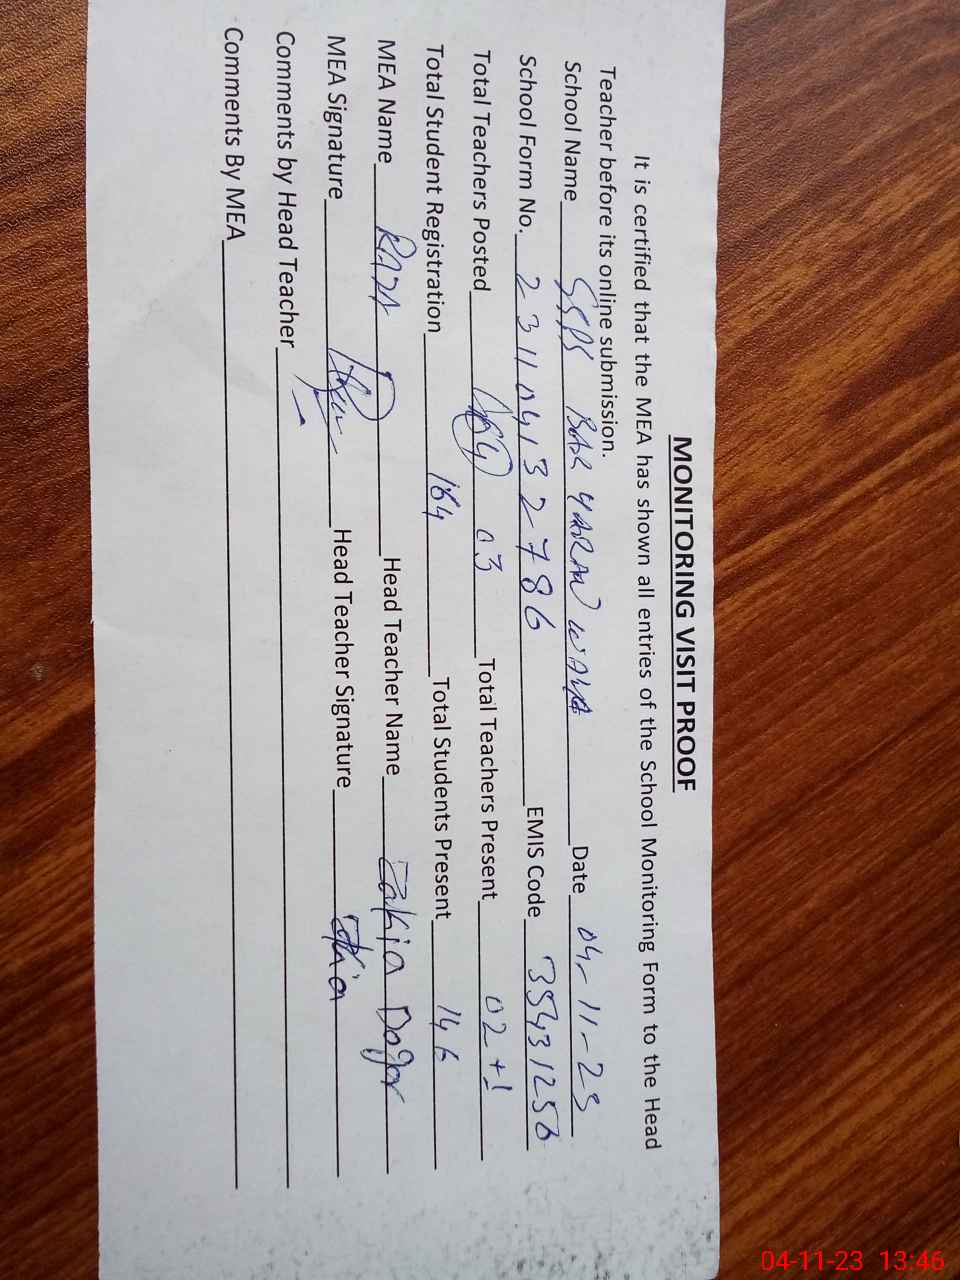 MONITORING VISIT PROOF
It is certified that the MEA has shown all entries of the School Monitoring Form to the Head
Teacher before its online submission.
School Name Date 04-11-23
School Form No. 231104132786 EMIS Code 35431256
Total Teachers Posted 03 Total Teachers Present 02+1
Total Student Registration 164 Total Students Present 146
MEA Name RAZA Head Teacher Name Zakia Dogar
MEA Signature Head Teacher Signature Zakia
Comments by Head Teacher
Comments By MEA
04-11-23 13:46